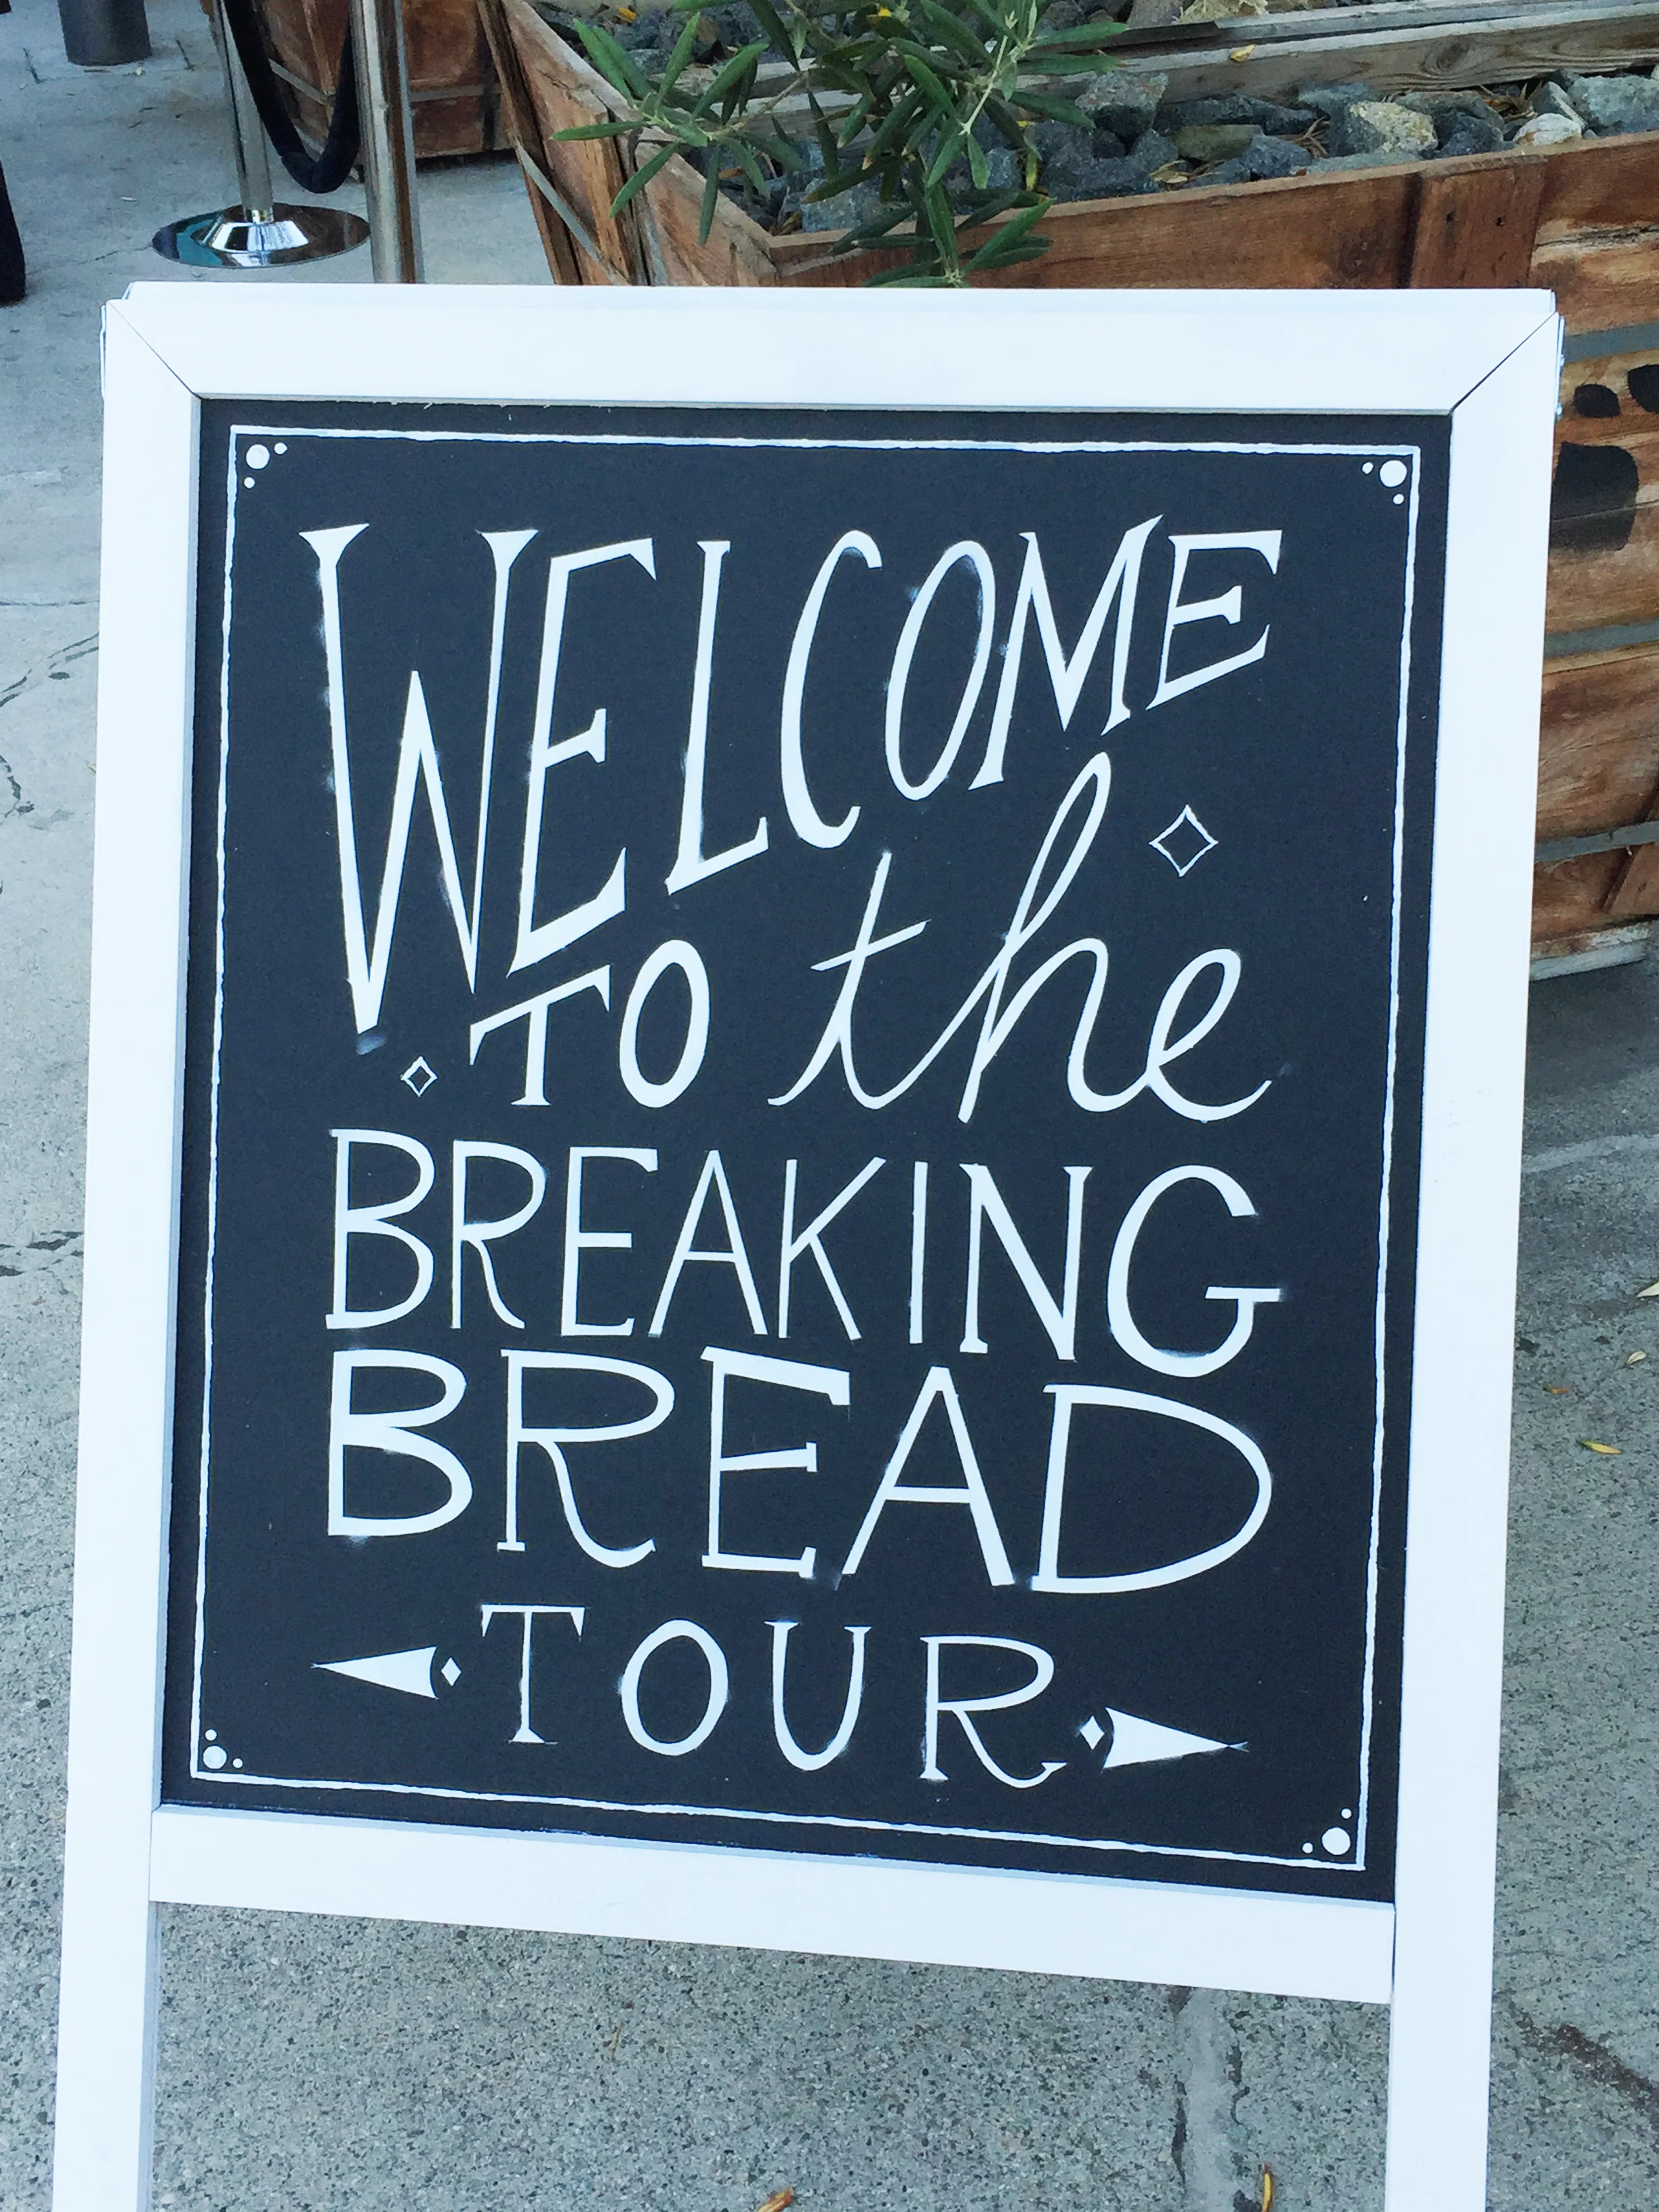 WELCOME
TO the
BREAKING
BREAD
TOUR